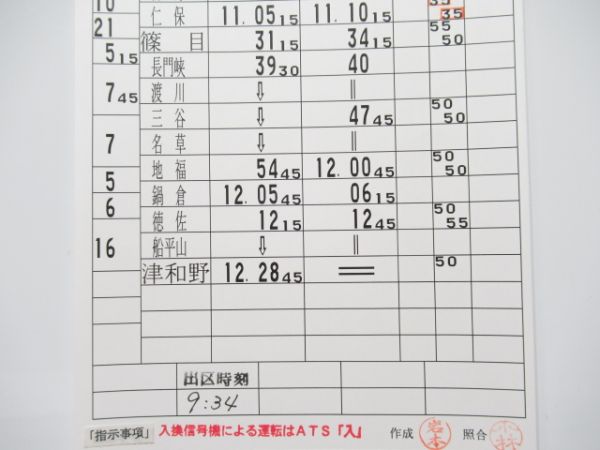 10 35
仁保 11.05 15 11.10 15 35
21 55
篠目 31 15 34 15 50
5 15
長門峡 39 30 40
渡川 ⇩ ‖
7 45 50
三谷 ⇩ 47 45 50
名草 ⇩ ‖
7 50
地福 54 45 12.00 45 50
5
鍋倉 12.05 45 06 15
6 50
徳佐 12 15 12 45 55
船平山 ⇩ ‖
16 50
津和野 12.28 45 ＝
出区時刻
9:34
「指示事項」 入換信号機による運転はATS「入」 作成 岩本 照合 小林